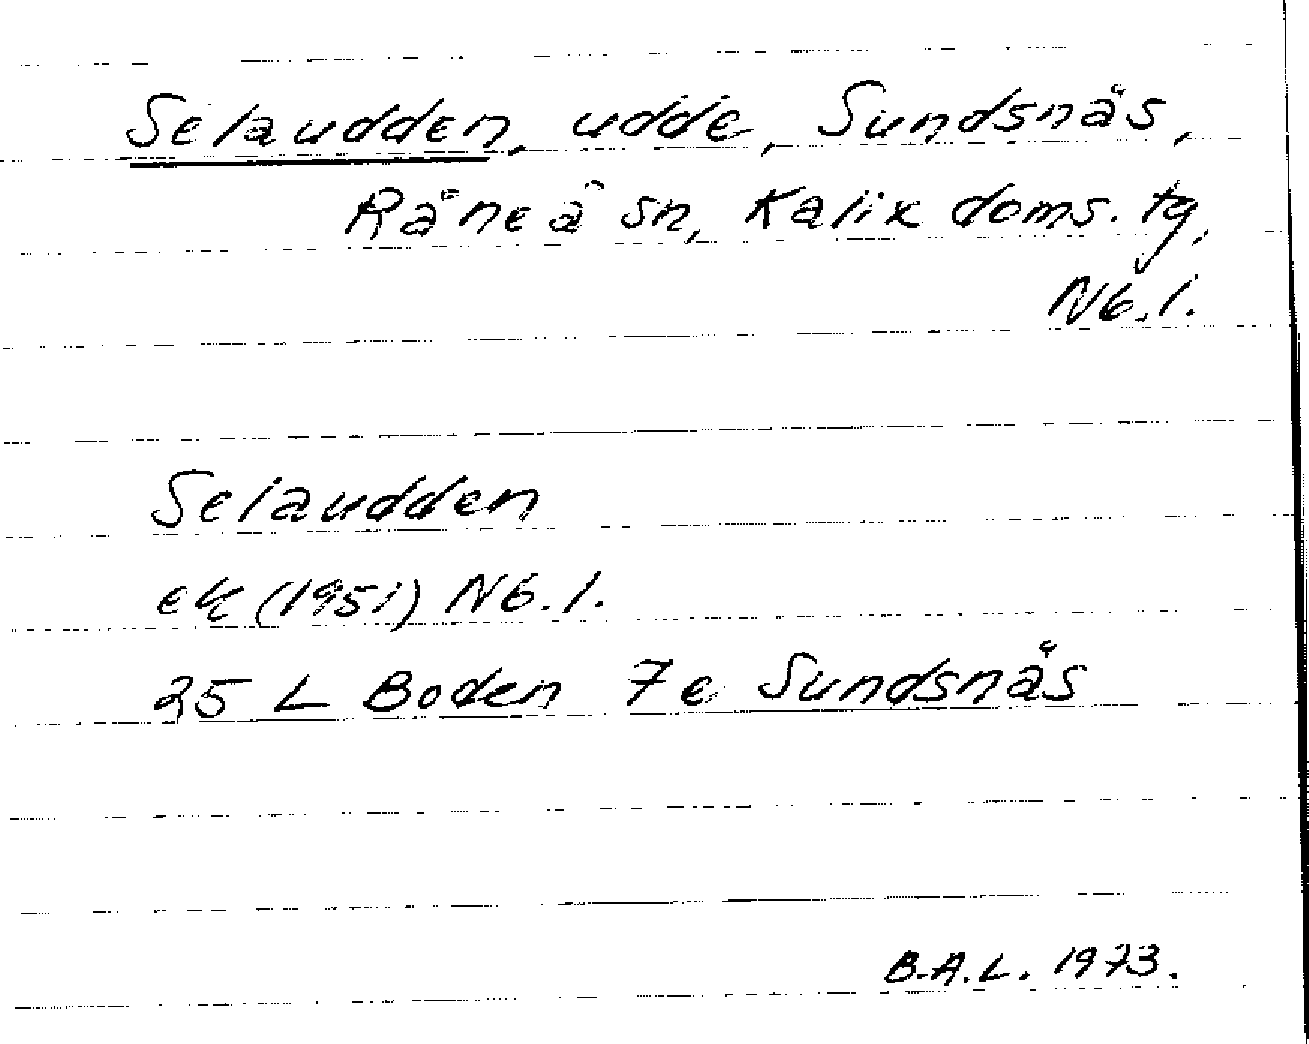 Selaudden, udde, Sundsnäs,
Råneå sn, Kalix doms. tg,
Nb. l.
Selaudden
ek (1951) Nb. l.
25 L Boden 7e Sundsnäs
B.A.L. 1973.